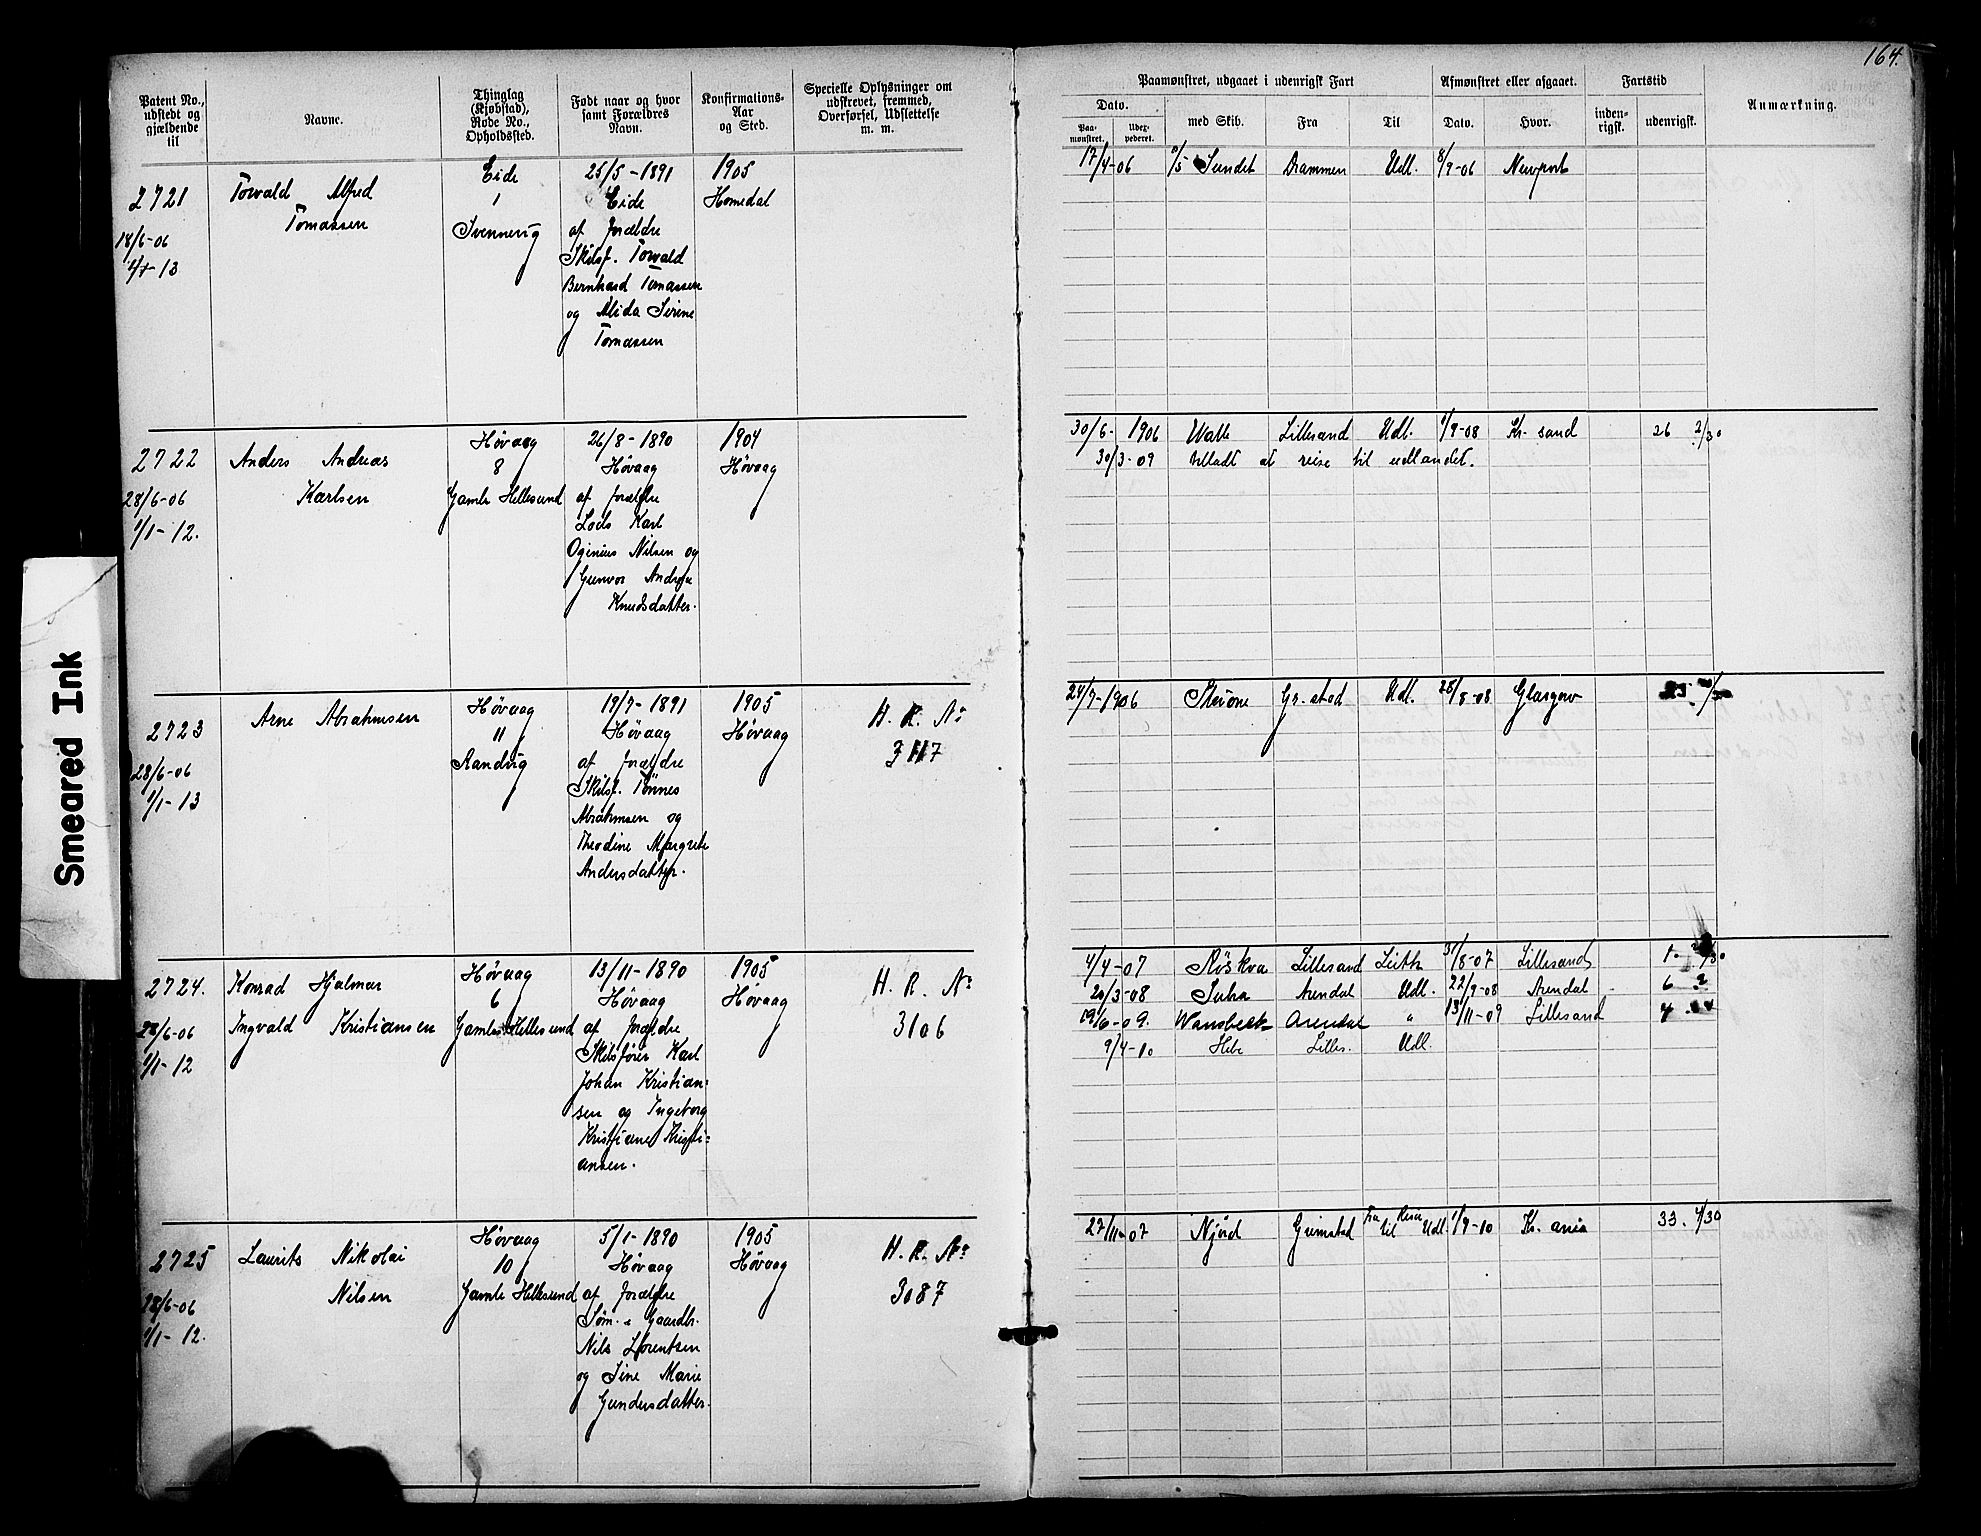 164.
Patent No., udstedt og gjældende til
Navne.
Thinglag (Kjøbstad), Rode No., Opholdssted.
Født naar og hvor samt Forældres Navn.
Konfirmations-Aar og Sted.
Specielle Oplysninger om udskrevet, fremmed, Overførsel, Udslettelse m. m.
Paamønstret, udgaaet i udenrigsk Fart
Dato.
Paa-mønstret.
Udex-pederet.
med Skib.
Fra
Til
Afmønstret eller afgaaet.
Dato.
Hvor.
Fartstid
inden-rigsk.
udenrigsk.
Anmærkning.
2721
18/6-06
Torvald Alfred
Tomassen
Eide
1
Svennevig
25/5-1891
Eide
af forældre
Skibsf. Torvald
Bernhard Tomassen
og Alida Serine
Tomassen
1905
Homedal
17/4-06 Sundet Drammen Udl. 8/9-06 Newport
2722
28/6-06
1/1-12.
Anders Andreas
Karlsen
Høvaag
8
Gamle Hellesund
26/8-1890
Høvaag
af forældre
Lods Karl
Oginius Nilsen og
Gunvor Andrea
Knudsdatter.
1904
Høvaag
30/6-1906 Walle Lillesand Udl. 1/9-08 Kr. sand 26 2/30
30/3-09 tilladt at reise til udlandet.
2723
28/6-06
1/1-13
Arne Abrahmsen
Høvaag
11
Randvig
19/7-1891
Høvaag
af forældre
Skibsf. Tønnes
Abrahmsen og
Theodine Margrete
Andersdatter.
1905
Høvaag
H. R. No
3117
24/7-1906 Gr.stad Udl. 28/8-08 Glasgow
2724.
28/6-06
1/1-12
Konrad Hjalmar
Ingvald Kristiansen
Høvaag
6
Gamle Hellesund
13/11-1890
Høvaag
af forældre
Skibsfører Karl
Johan Kristian-
sen og Ingeborg
Kristiane Kristi-
ansen.
1905
Høvaag
H. R. No
3106
4/4-07 Røskva Lillesand Leith 31/8-07 Lillesand
20/3-08 Arendal Udl. 22/9-08 Arendal 6
19/6-09. Wansbeck Arendal " 13/11-09 Lillesand 4
9/4-10 Hebe Lilles. Udl.
2725
28/6-06
1/1-12.
Laurits Nikolai
Nilsen
Høvaag
10
Gamle Hellesund
5/1-1890
Høvaag
af forældre
Søm. & Gaardbr.
Nils Lorentsen
og Sine Marie
Gundersdatter.
1905
Høvaag
H. R. No
3087
27/11-07 Njörd Grimstad Fra Reise til Udl. 1/9-10 Kr. ania 33. 4/30
Smeared Ink